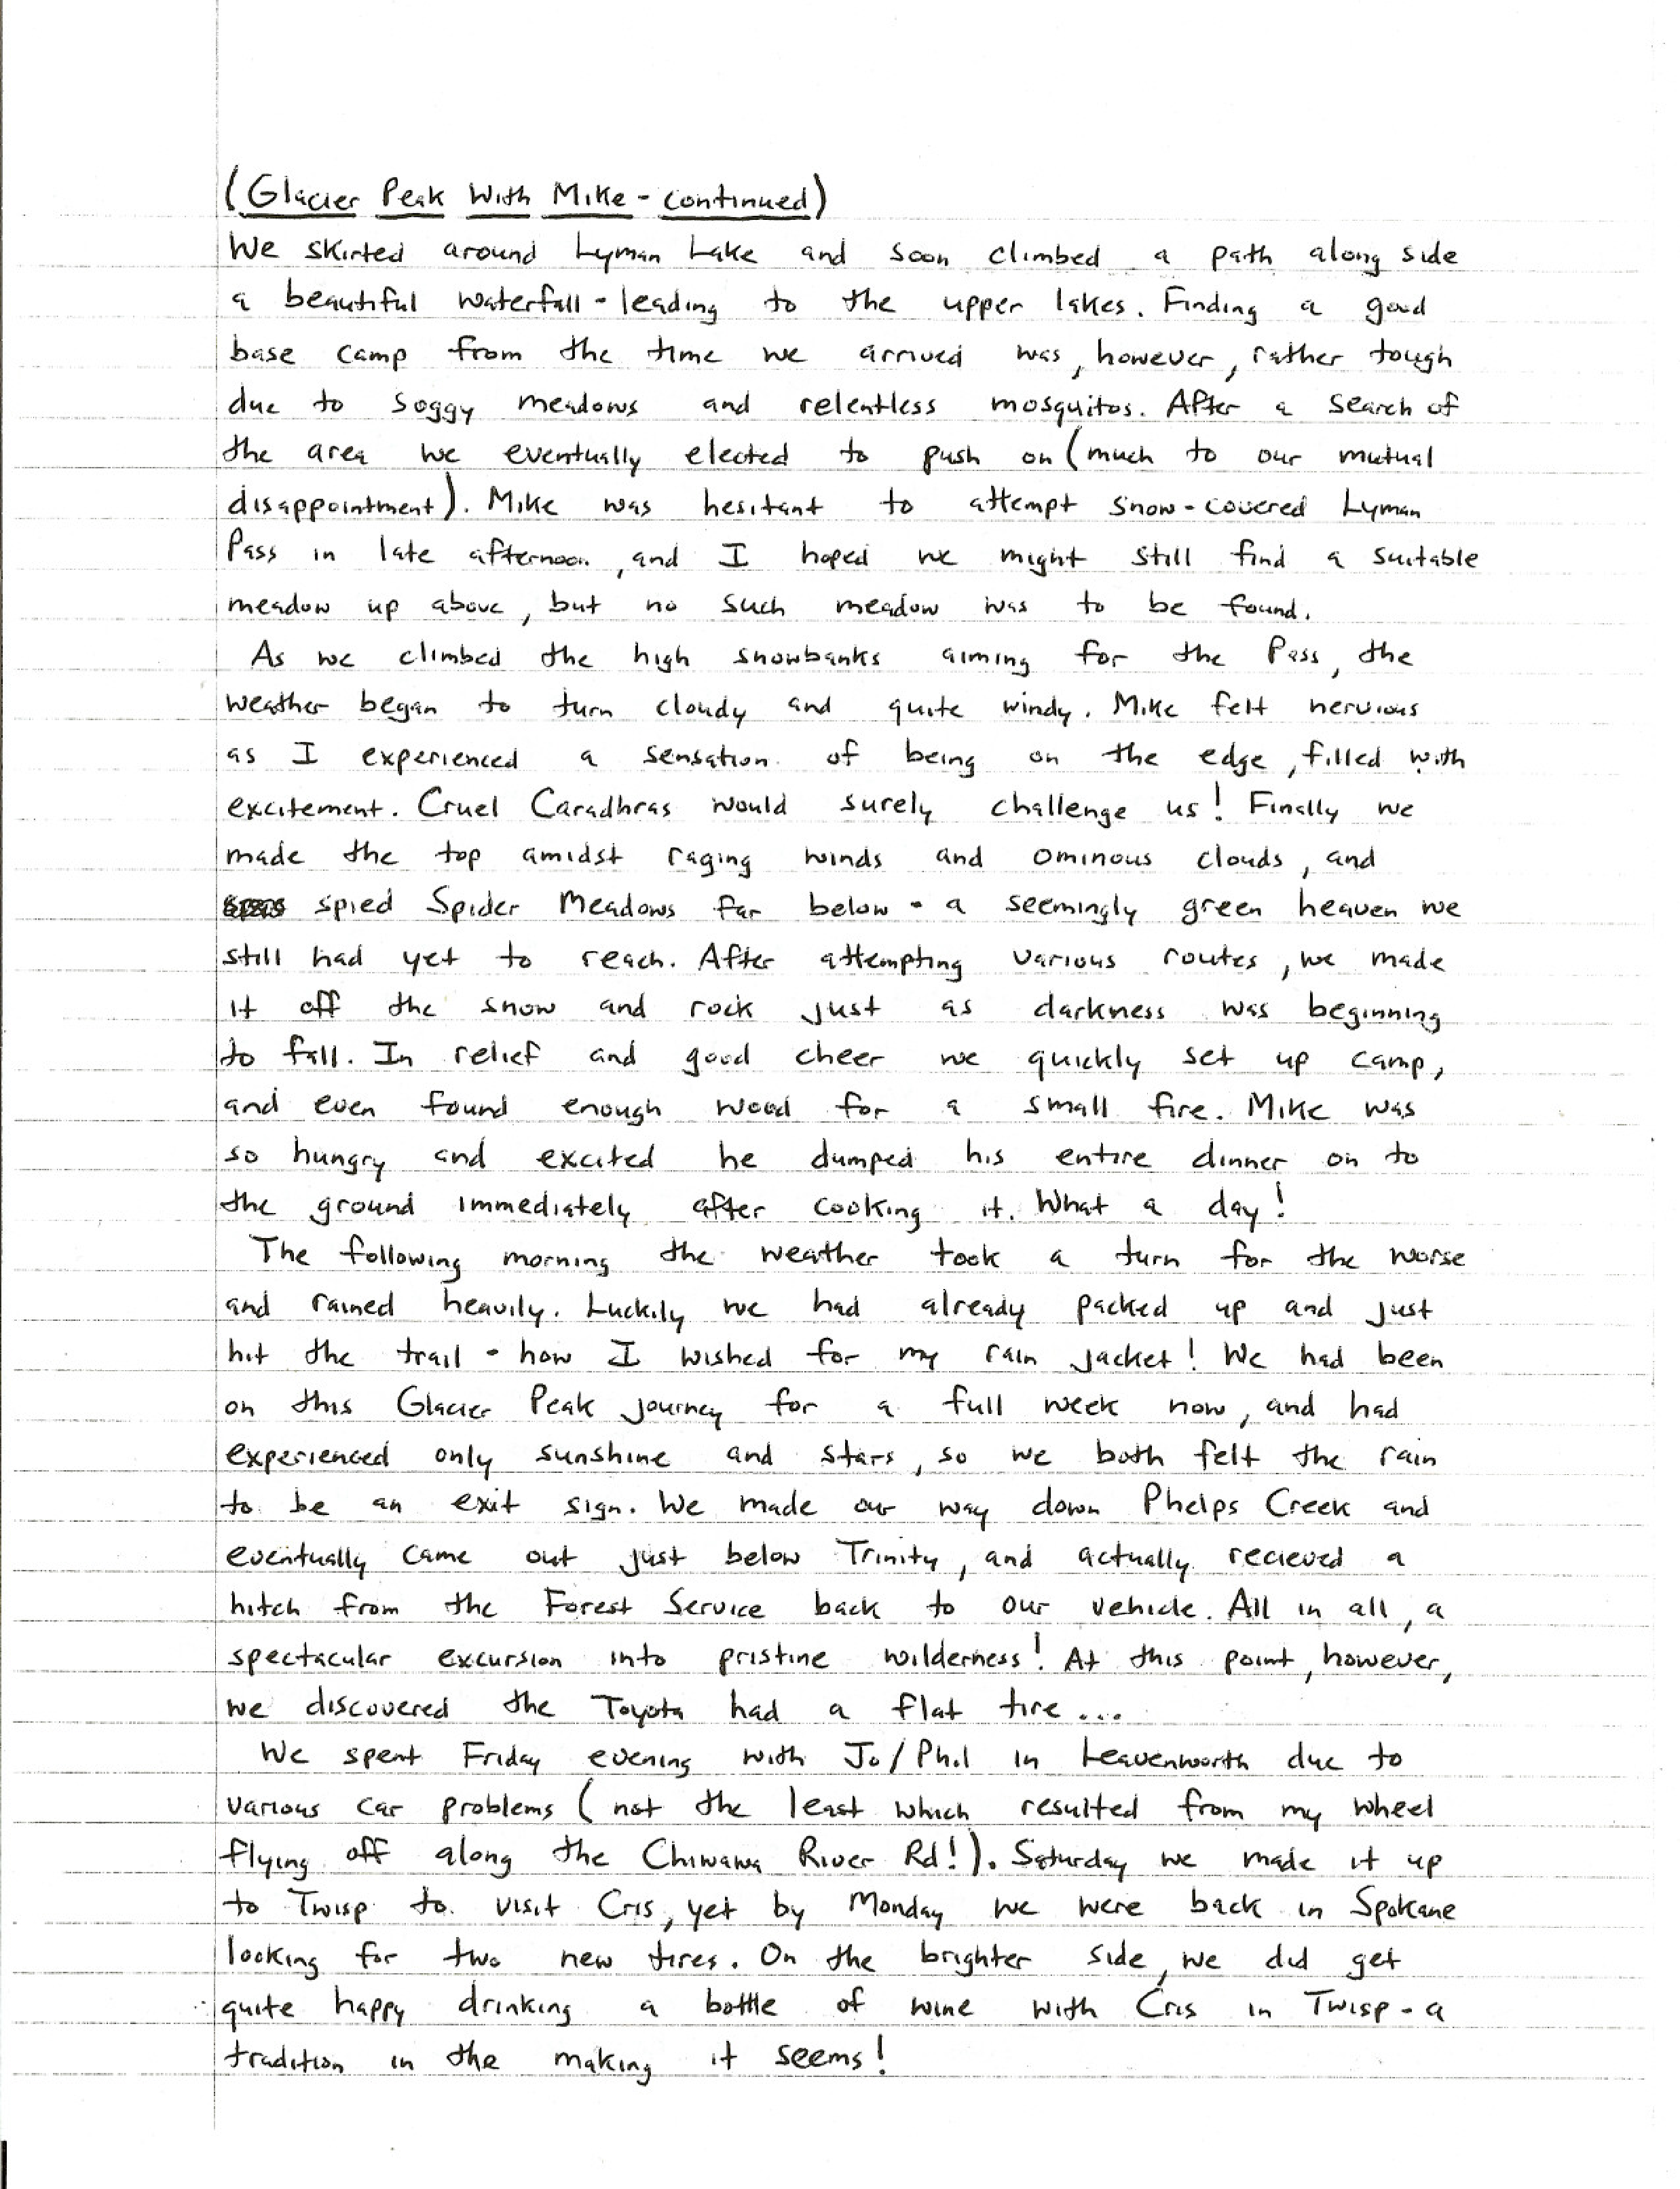 (Glacier Peak With Mike - continued)
We skirted around Lyman Lake and soon climbed a path along side
a beautiful waterfall - leading to the upper lakes. Finding a good
base camp from the time we arrived was, however, rather tough
due to soggy meadows and relentless mosquitos. After a search of
the area we eventually elected to push on (much to our mutual
disappointment). Mike was hesitant to attempt snow-covered Lyman
Pass in late afternoon, and I hoped we might still find a suitable
meadow up above, but no such meadow was to be found.
As we climbed the high snowbanks aiming for the Pass, the
weather began to turn cloudy and quite windy. Mike felt nervious
as I experienced a sensation of being on the edge, filled with
excitement. Cruel Caradhras would surely challenge us! Finally we
made the top amidst raging winds and ominous clouds, and
spied Spider Meadows far below - a seemingly green heaven we
still had yet to reach. After attempting various routes, we made
it off the snow and rock just as darkness was beginning
to fall. In relief and good cheer we quickly set up camp,
and even found enough wood for a small fire. Mike was
so hungry and excited he dumped his entire dinner on to
the ground immediately after cooking it. What a day!
The following morning the weather took a turn for the worse
and rained heavily. Luckily we had already packed up and just
hit the trail - how I wished for my rain jacket! We had been
on this Glacier Peak journey for a full week now, and had
experienced only sunshine and stars, so we both felt the rain
to be an exit sign. We made our way down Phelps Creek and
eventually came out just below Trinity, and actually recieved a
hitch from the Forest Service back to our vehicle. All in all, a
spectacular excursion into pristine wilderness! At this point, however,
we discovered the Toyota had a flat tire...
We spent Friday evening with Jo/Phil in Leavenworth due to
various car problems (not the least which resulted from my wheel
flying off along the Chiwawa River Rd!). Saturday we made it up
to Twisp to visit Cris, yet by Monday we were back in Spokane
looking for two new tires. On the brighter side, we did get
quite happy drinking a bottle of wine with Cris in Twisp - a
tradition in the making it seems!